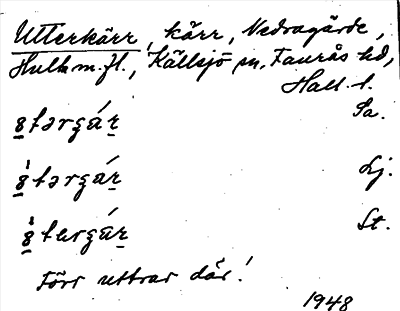 Utterkärr, kärr, Nedragärde,
Hulk m.fl., Källsjö sn, Faurås hd,
Hall. l.
Sa.
Lj.
St.
Förr uttrar där!
1948